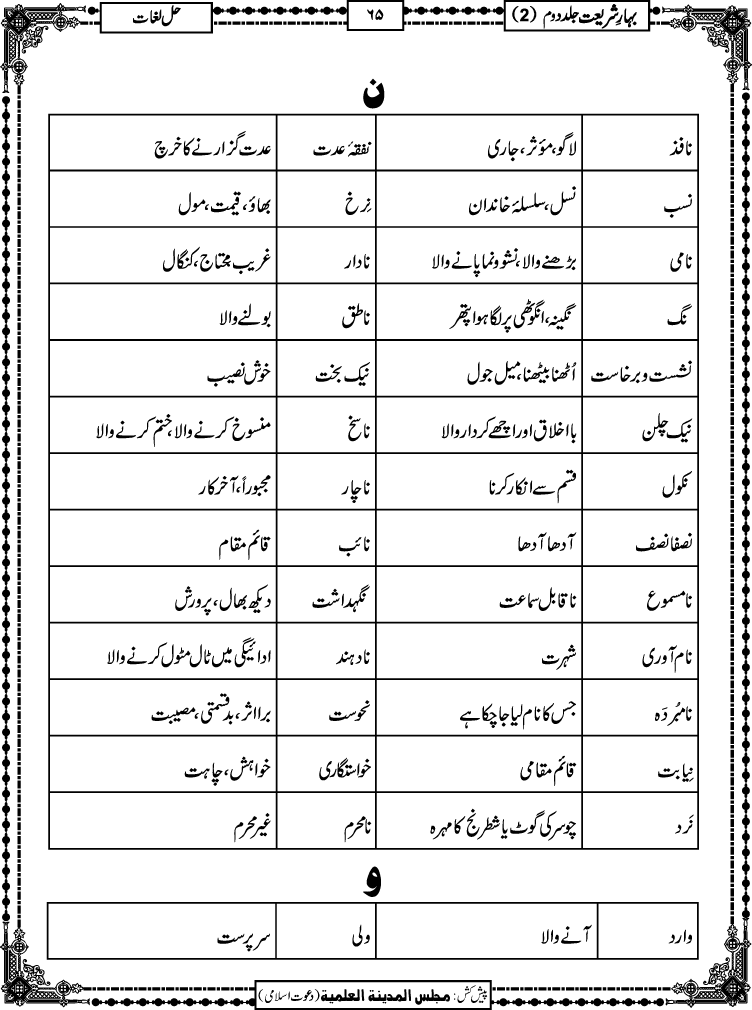 بہارِ شریعت جلد دوم (2)
۶۵
حل لغات
ن
نافذ لاگو، مؤثر، جاری نفقۂ عدت عدت گزارنے کا خرچ
نسب نسل، سلسلۂ خاندان نِرخ بھاؤ، قیمت، مول
نامی بڑھنے والا، نشوونما پانے والا نادار غریب محتاج، کنگال
نگ نگینہ، انگوٹھی پر لگا ہوا پتھر ناطق بولنے والا
نشست و برخاست اُٹھنا بیٹھنا، میل جول نیک بخت خوش نصیب
نیک چلن بااخلاق اور اچھے کردار والا ناسخ منسوخ کرنے والا، ختم کرنے والا
نکول قسم سے انکار کرنا ناچار مجبوراً، آخر کار
نصفا نصف آدھا آدھا نائب قائم مقام
نامسموع ناقابل سماعت نگہداشت دیکھ بھال، پرورش
نام آوری شہرت نادہند ادائیگی میں ٹال مٹول کرنے والا
نامبُردَہ جس کا نام لیا جا چکا ہے نحوست برا اثر، بدقسمتی، مصیبت
نِیابت قائم مقامی خواستگاری خواہش، چاہت
نَرد چوسر کی گوٹ یا شطرنج کا مہرہ نامحرم غیر محرم
و
وارد آنے والا ولی سرپرست
پیش کش: مجلس المدینۃ العلمیۃ (دعوت اسلامی)